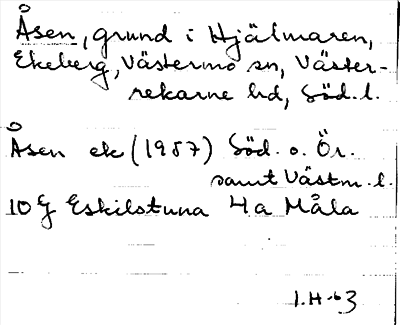 Åsen, grund i Hjälmaren,
Ekeberg, Västermo sn, Väster-
rekarne hd, Söd. l.
Åsen ek (1957) Söd. o. Ör.
samt Västm. l.
10 G Eskilstuna 4a Måla
I.H-63